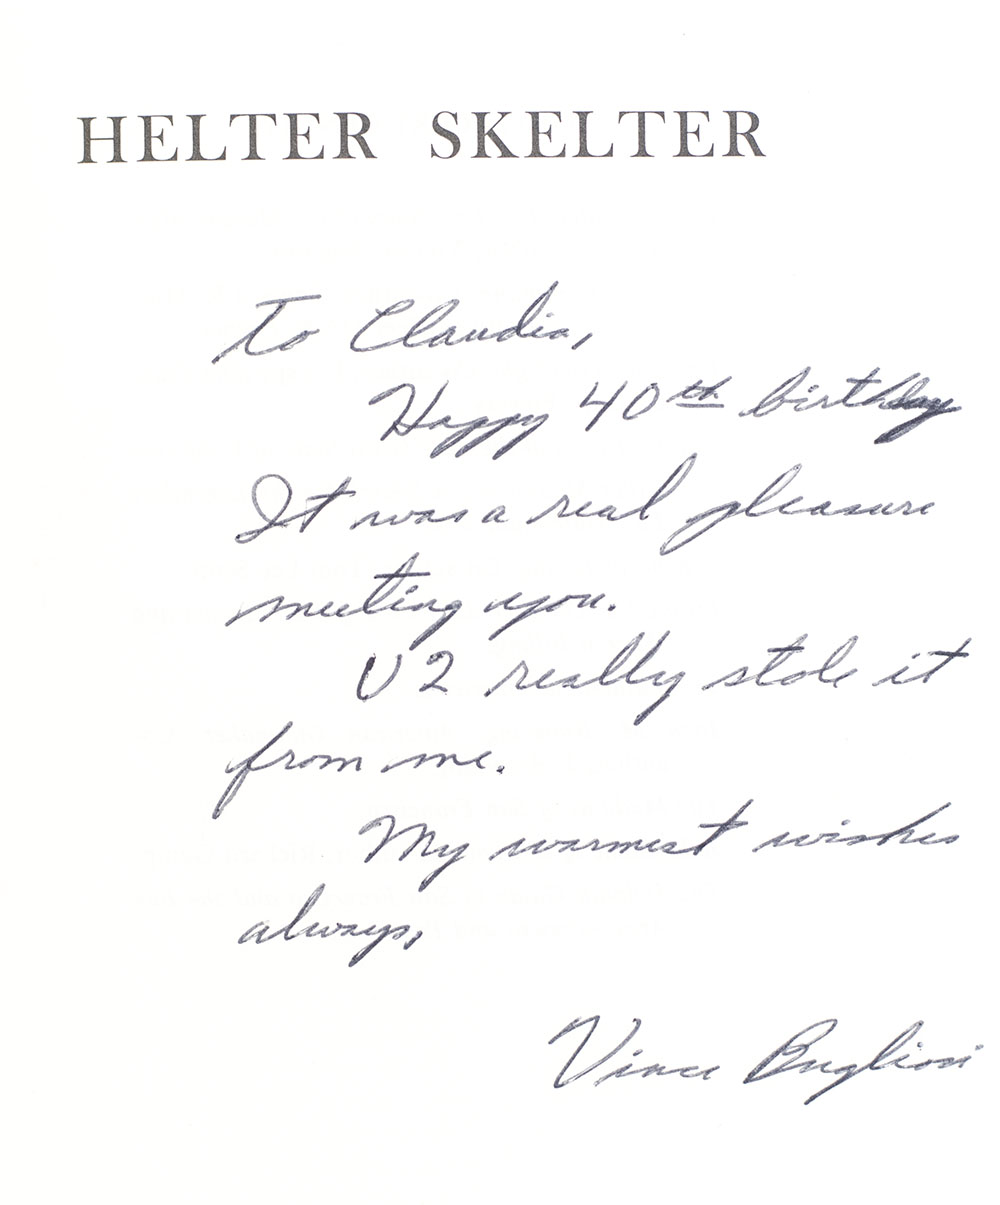 HELTER SKELTER
To Claudia,
Happy 40th birthday
It was a real pleasure
meeting you.
U2 really stole it
from me.
My warmest wishes
always,
Vince Bugliosi